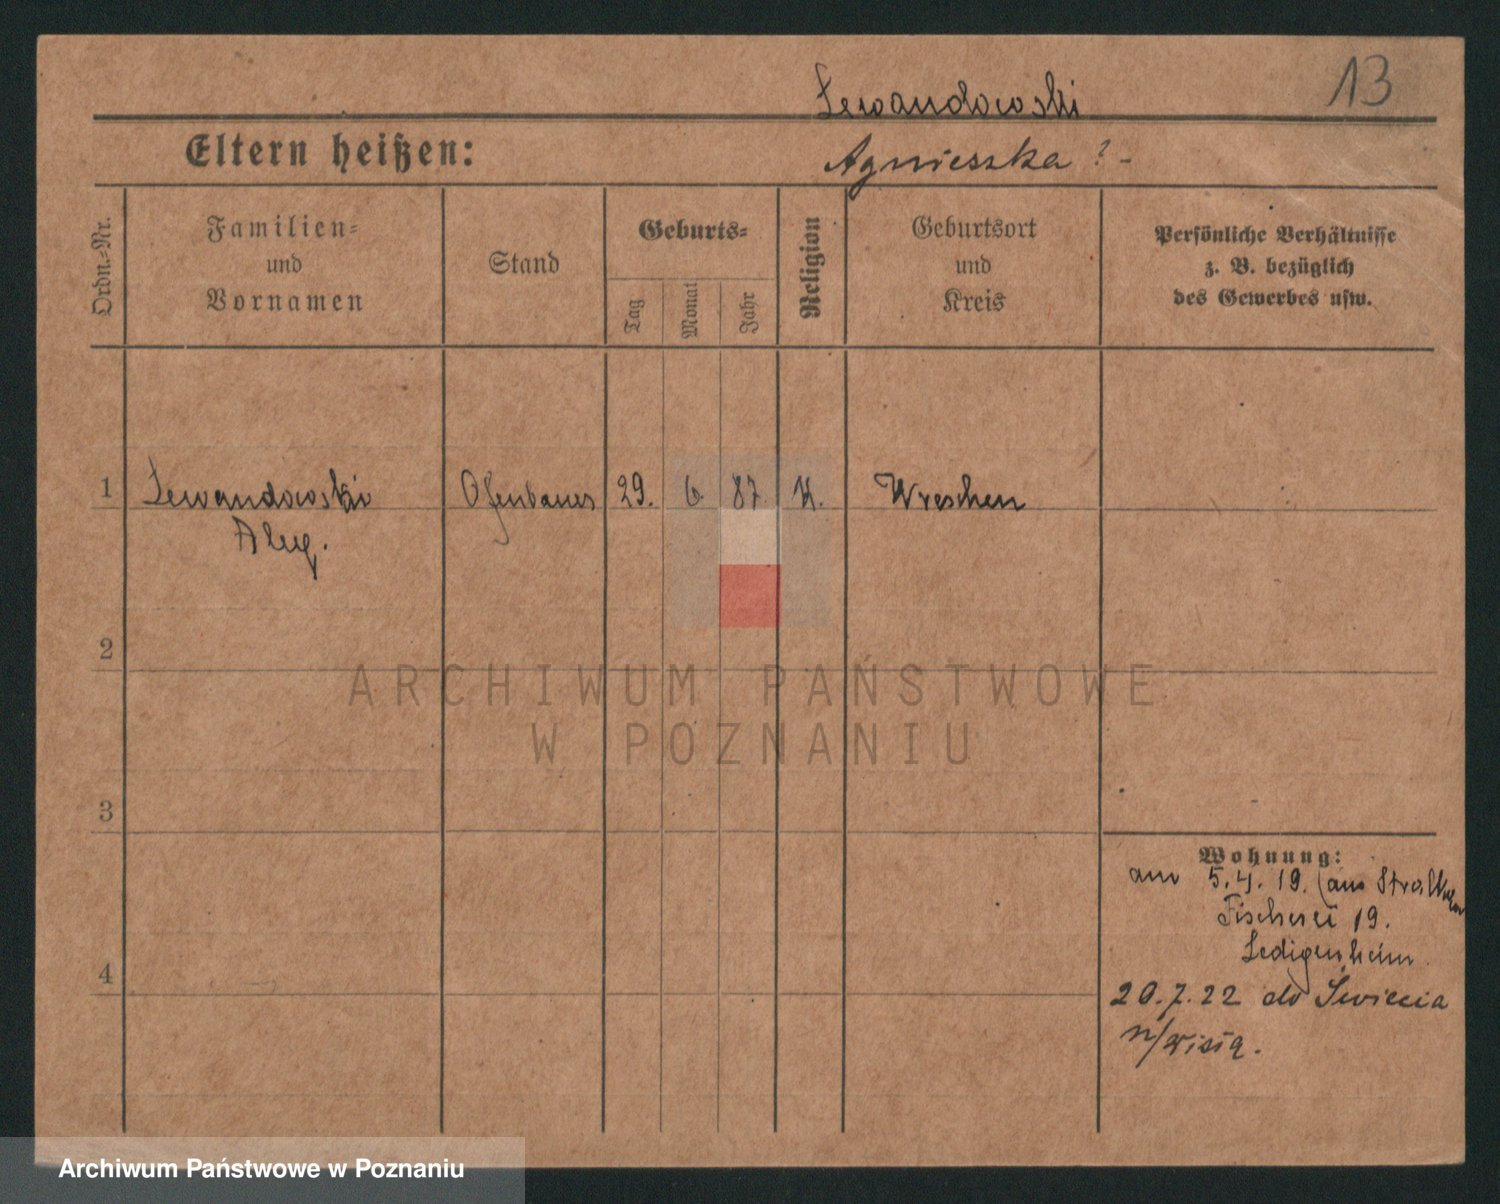 13
Lewandowski
Eltern heißen:
Agnieszka ? -
Ordn.-Nr.
Familien-
und
Vornamen
Stand
Geburts-
Tag
Monat
Jahr
Religion
Geburtsort
und
Kreis
Persönliche Verhältnisse
z. B. bezüglich
des Gewerbes usw.
1 Lewandowski Ofenbauer 29. 6. 87. K. Wreschen
2
3
4
Wohnung:
am 5.4.19. (aus
Fischerei 19.
Ledigenheim
20.7.22 do Świecia
n/Wisłą.
ARCHIWUM PAŃSTWOWE
W POZNANIU
Archiwum Państwowe w Poznaniu